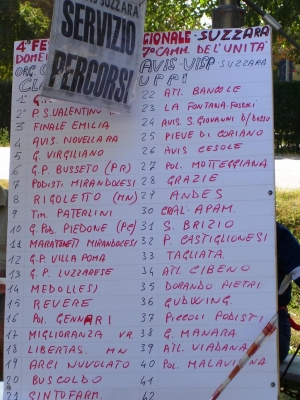 SUZZARA
SERVIZIO
PERCORSI
4ª FE
GIONALE - SUZZARA
DOME
CAMM. DELL'UNITÀ
ORG.
AVIS - UISP SUZZARA
CL
1
2° P.S. VALENTINO
3 FINALE EMILIA
4 AVIS. NOVELLARA
5 G. VIRGILIANO
6 G.P. BUSSETO (PR)
7 PODISTI MIRANDOLESI
8 RIGOLETTO (MN)
9 TM. PATERLINI
10 G. POD. PIEDONE
11 MARATONETI MIRANDOLESI
12 G.P. VILLA POMA
13 G.P. LUZZARESE
14 MEDOLLESI
15 REVERE
16 POL. GENNARI
17 MIGLIORANZA
18 LIBERTAS. MN
19 ARCI NUVOLATO
20 BUSCOLDO
21 SINTOFARM.
22 ATL. BANCOLE
23 LA FONTANA
24 AVIS S. GIOVANNI d/Dosso
25 PIEVE DI CORIANO
26 AVIS CESOLE
27 POL. MOTTEGGIANA
28 GRAZIE
29 ANDES
30 CRAL-APAM.
31 S. BRIZIO
32 P. CASTIGLIONESI
33 TAGLIATA
34 ATL CIBENO
35 DORANDO PIETRI
36 GUDWING.
37 PICCOLI PODISTI
38 G. MANARA
39 ATL. VIADANA
40 POL. MALAVICINA
41
42